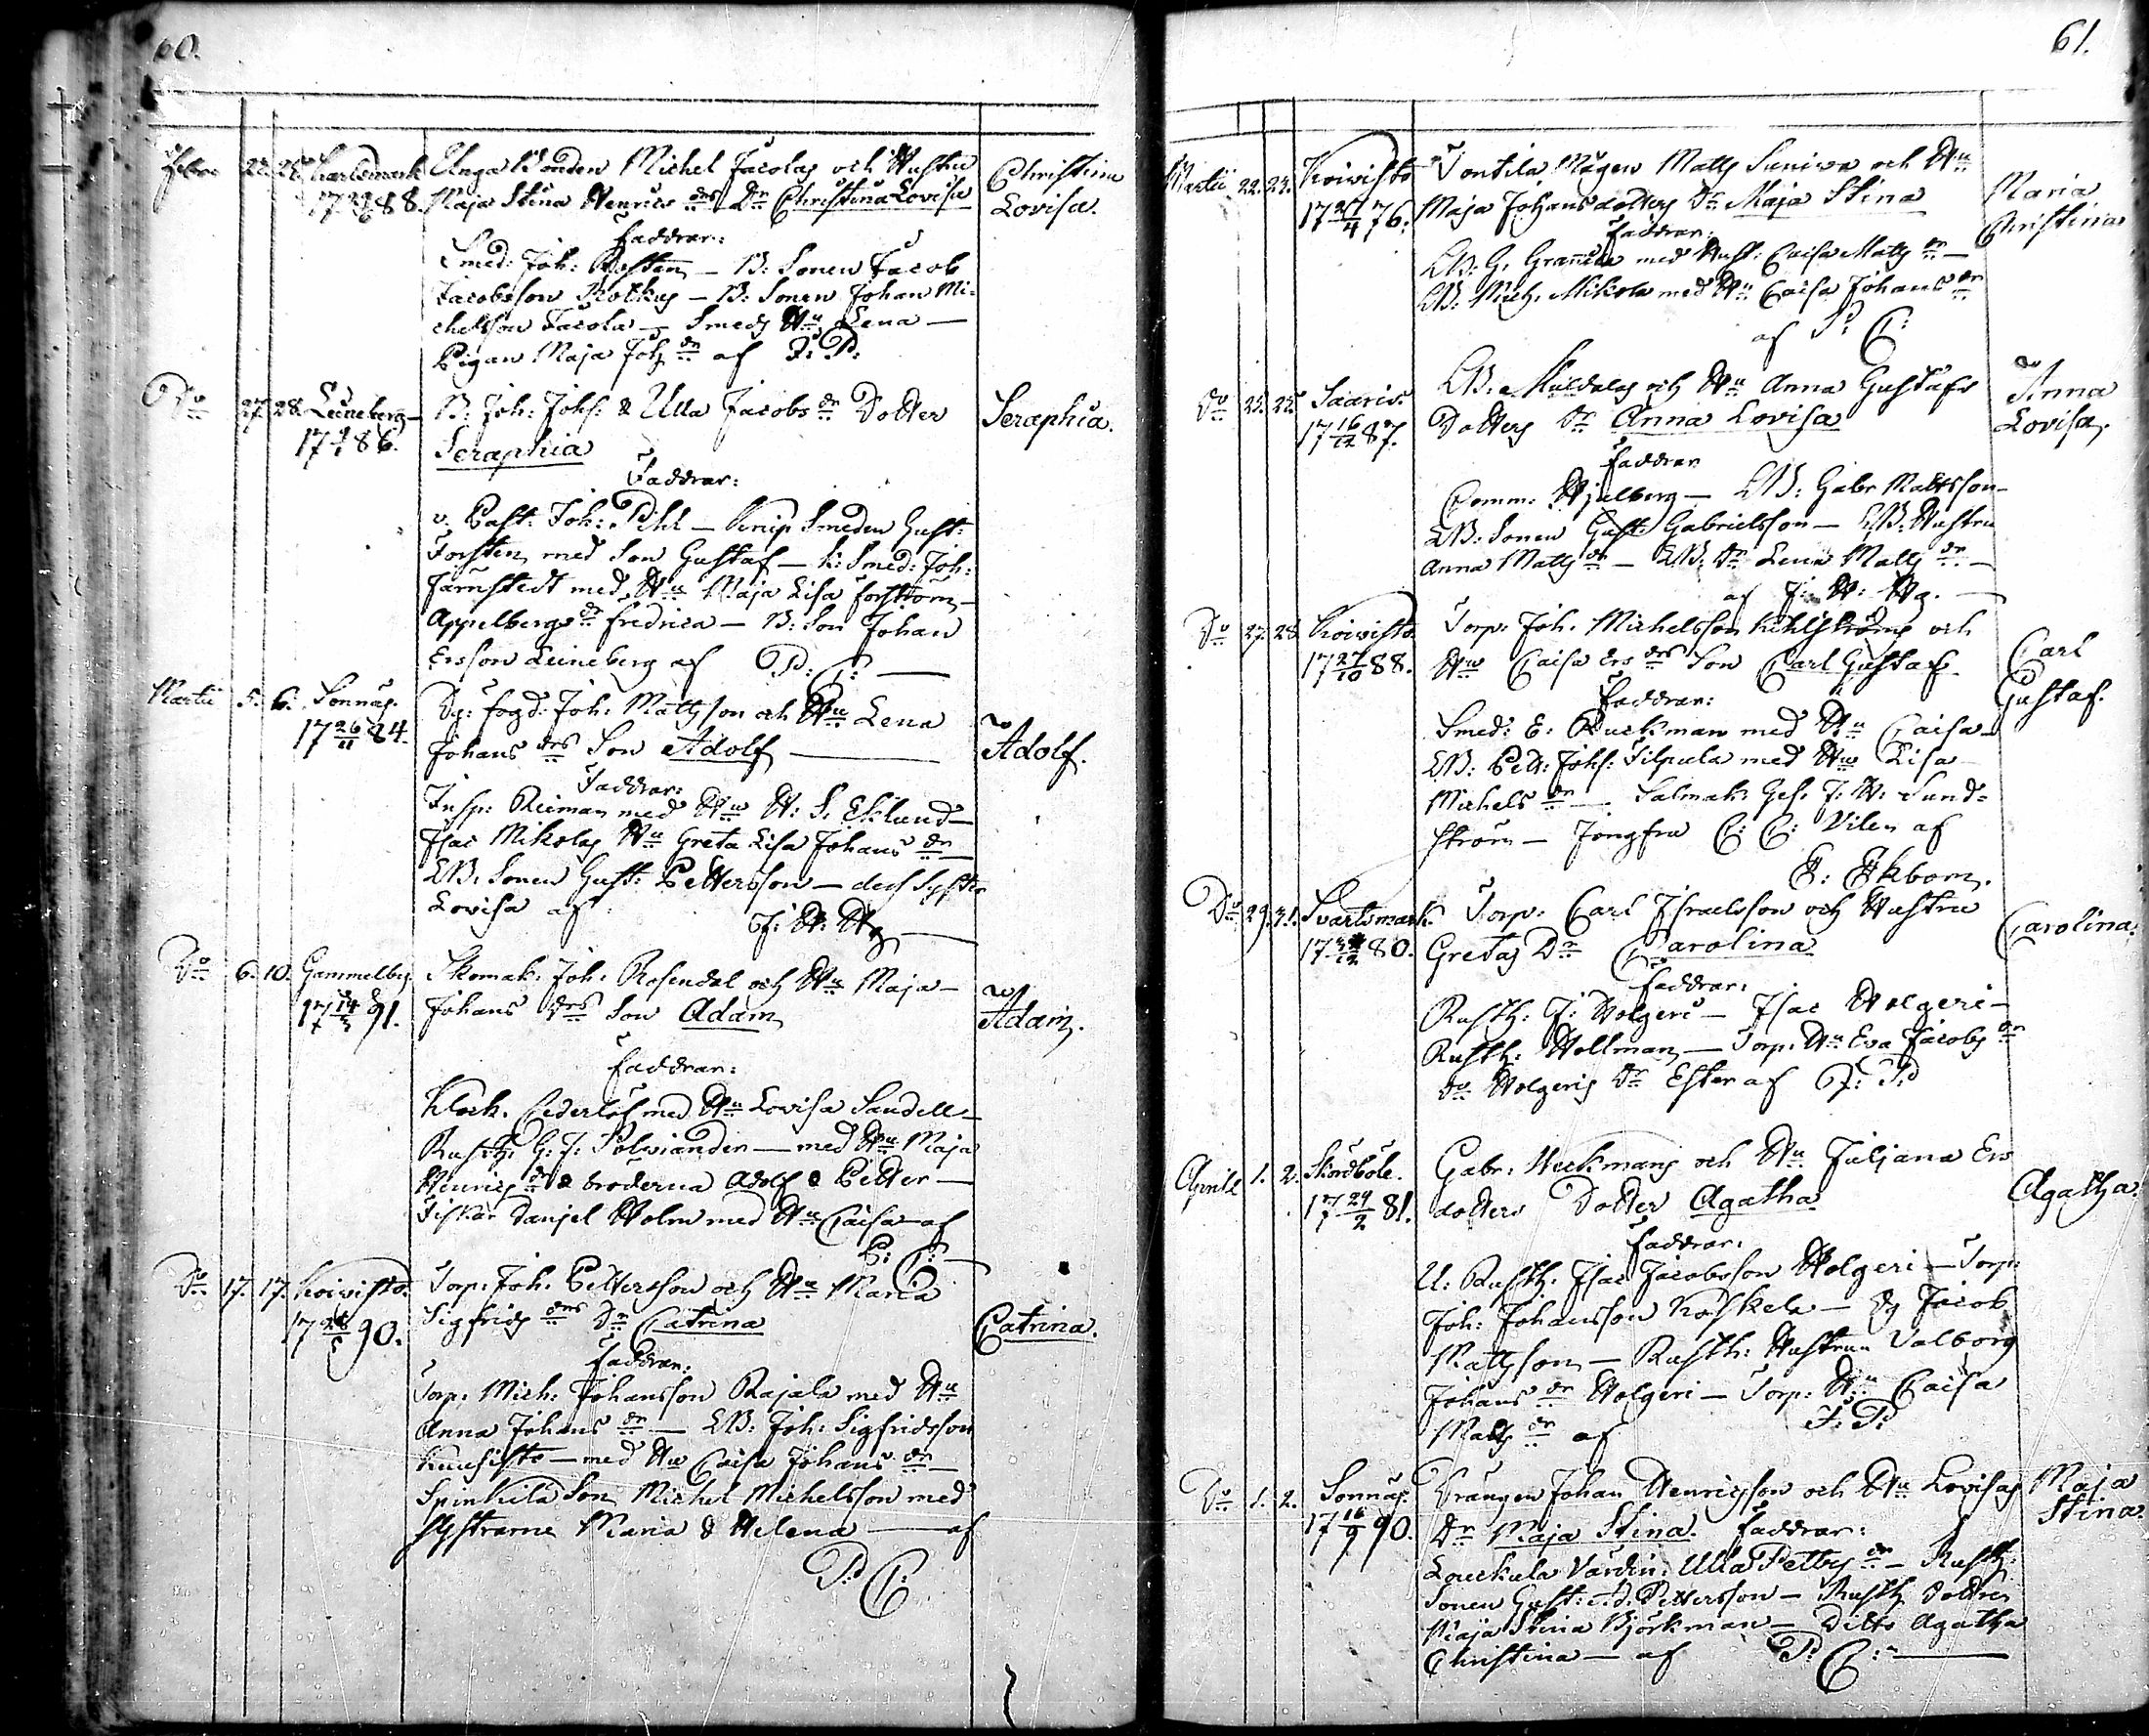 60.
Febru 22. 24. Karlsmark Unga Bonden Michel Jacolas och Hustru Christina
17 23/8 88. Maja Stina Henrics drs Dr Christina Lovisa Lovisa.
Faddrar:
Smed: Joh: Rosten — B: Sonen Jacob
Jacobsson — B: Sonen Johan Mi-
chelsson Jacola — Smeds Hu Lena —
Pigan Maja Joh dr af J: P:
Do 27. 28. Leineberg B: Joh: Johs: & Ulla Jacobs dr Dotter Seraphia.
86. Seraphia
Faddrar:
v. Past: Joh: Pihl — Knip Smeden Gust:
Forsten med Son Gustaf — K: Smed: Joh:
Färnstedt med Hu Maja Lisa Forström —
Appelbergs dr Fredrica — B: Son Johan
Ersson Leineberg af P: C: —
Martii 5. 6. Sonnäs. Dg: fogd: Joh: Mattsson och Hu Lena
17 26/11 84. Johans drs Son Adolf — Adolf.
Faddrar:
Insp: Reiman med Hu H: S. Eklund —
Isac Mikolas Hu Greta Lisa Johans dr —
LB: Sonen Gust: Pettersson — des Syster
Lovisa af J: H: Hg —
Do 6. 10. Gammelby. Skomak: Joh: Rosendal och Hu Maja —
17 14/3 91. Johans drs Son Adam Adam.
Faddrar:
Klock. Cederlöf med Hu Lovisa Sandell —
Rusth. G: J: Polviander — med Hu Maja
Henrics dr & bröderna Adolf & Petter —
Fiskar Danjel Holm med Hu Caisa af
P: C: —
Do 17. 17. Koivisto. Torp: Joh: Pettersson och Hu Maria
17 90. Sigfrids drs Dr Catrina Catrina.
Faddrar:
Torp: Mich: Johansson Rajala med Hu
Anna Johans dr — LB: Joh: Sigfridsson
Kuusisto — med Hu Caisa Johans dr —
Spinkila Son Michel Michelsson med
systrarne Maria & Helena — af
P: C:
61.
Martii 22. 23. Koivisto Tontila Mågen Matts Suniva och Hu Maria
17 /4 76. Maja Johansdotters Dr Maja Stina Christina
Faddrar:
LB: G. med Hust: Caisa Matts dr —
LB: Mich. Mikola med Hu Caisa Johans dr
af P: C:
Do 25. 25. Saaris: LB: Muldalas och Hu Anna Gustafs Anna
17 16/12 87. Dotters Dr Anna Lovisa Lovisa.
Faddrar
Comm: Hjelberg — LB: Gabr Mattsson —
LB: Sonen Gust: Gabrielsson — LB: Hustru
Anna Matts dr — LB: Dr Lena Matts dr —
af J: H: Hg. —
Do 27. 28. Koivisto Torp: Joh. Michelsson Kihlströms och Carl
17 27/10 88. Hu Caisa Ers drs Son Carl Gustaf. Gustaf.
Faddrar:
Smed: E: Ruckman med Hu Caisa —
LB: Pett: Johs: Silpula med Hu Lisa
Michels dr — Salmak: Ges. J: H: Sund-
ström — Jongfru C: C: Vilen af
E: Ekbom.
Do 29. 31. Svartsmark. Torp: Carl Israelsson och Hustru Carolina.
17 /12 80. Gretas Dr Carolina
Faddrar:
Rusth: J: Holgeri — Isac Holgeri —
Rusth: Hollman — Torp: Hu Eva Jacobs dr
Do Holgeris Dr Ester af J: P:
Aprill 1. 2. Skordböle. Gabr: Heckmans och Hu Juljana Ers Agatha.
17 24/2 81. dotters Dotter Agatha
Faddrar:
U: Rusth: Isac Jacobsson Holgeri — Torp:
Joh: Johansson Koskela — Dg Jacob
Mattsson — Rusth: Hustrun Valborg
Johans dr Holgeri — Torp: Hu Caisa
Matts dr af J: P:
Do 1. 2. Sonnäs. Drängen Johan Henricsson och Hu Lovisas Maja
17 16/9 90. Dr Maja Stina. Faddrar: Stina.
Louckula Värdin: Ulla Petters dr — Rusth:
Sonen Gust: Ad: Pettersson — Rusth Dotren
Maja Stina Björkman — Ditto Agatha
Christina — af P: C: —